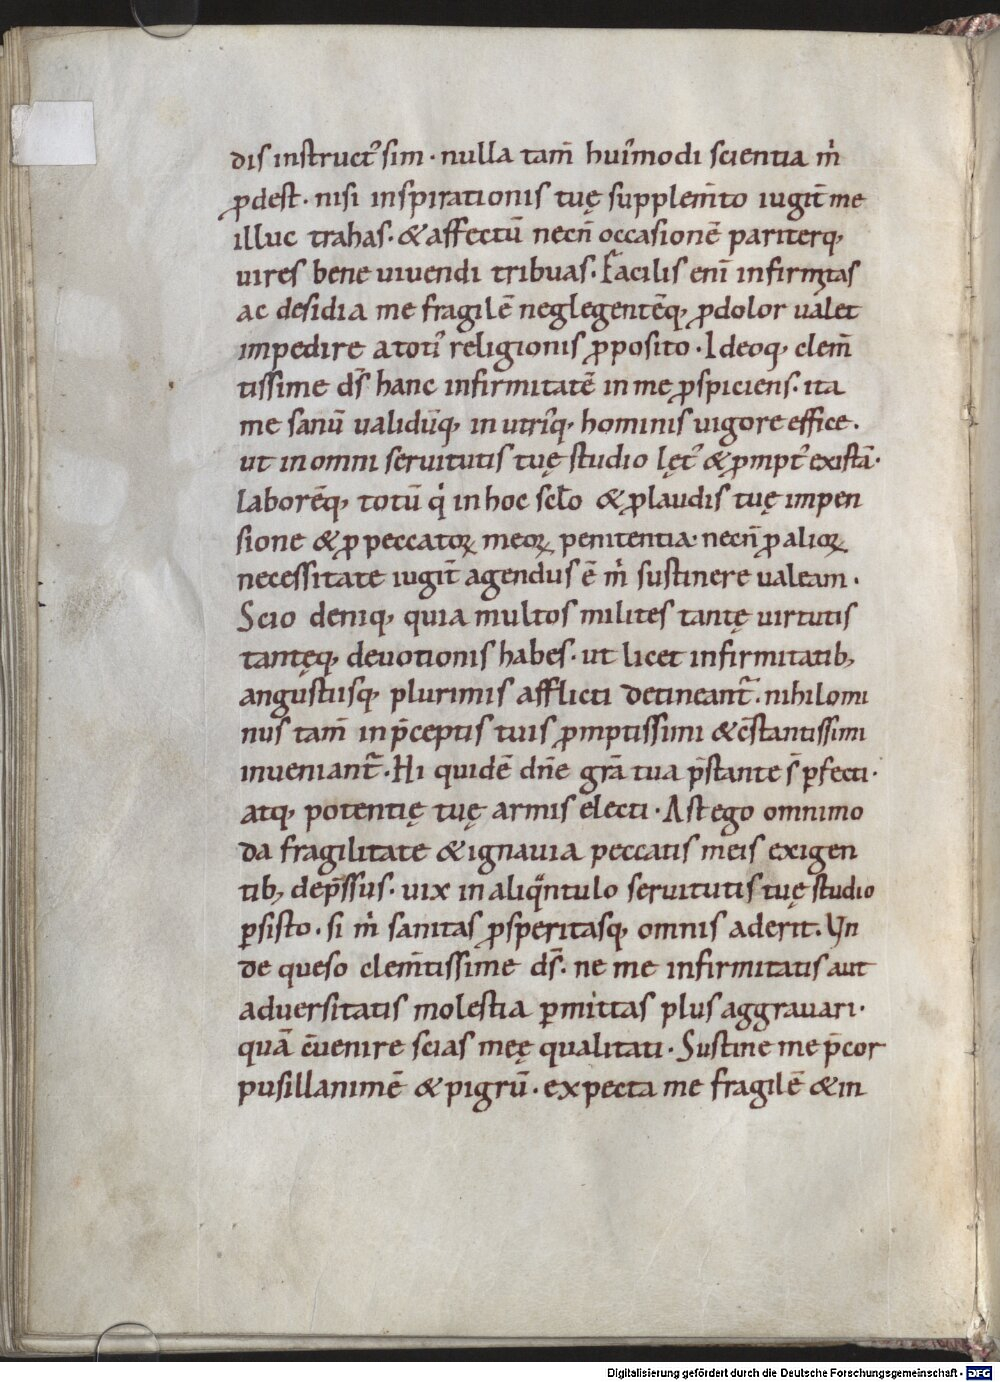 dis instruct᾽ sim · nulla tam̅ hui᾽modi scientia m̍
ꝓdest · nisi inspirationis tuę supplem̅to iugit̅ me
illuc trahas · & affectu̅ necn̅ occasione̅ pariterq,
uires bene uiuendi tribuas · Facilis eni̅ infirmitas
ac desidia me fragile̅ neglegente̅q, ꝓdolor ualet
impedire a toti᾽ religionis ꝓposito · Ideoq, clem̅
tissime ds̅ hanc infirmitate̅ in me ꝓspiciens · ita
me sanu̅ ualidu̅q, in utri᾽q, hominis uigore effice ·
ut in omni seruitutis tuę studio lęt᾽ & ꝓmpt᾽ exista̅ ·
labore̅q, totu̅ q̍ in hoc sclo̅ & ꝓ laudis tuę impen
sione & ꝓ peccatoꝝ meoꝝ penitentia · necn̅ ꝓ alioꝝ
necessitate iugit̅ agendus e̅ m̍ sustinere ualeam ·
Scio deniq, quia multos milites tantę uirtutis
tantęq, deuotionis habes · ut licet infirmitatib,
angustiisq, plurimis afflicti detineant᷑ · nihilomi
nus tam̅ in p̅ceptis tuis ꝓmptissimi & c̅stantissimi
inueniant᷑ · Hi quide̅ dn̅e gra̅ tua p̅stante s̅ ꝑfecti ·
atq, potentię tuę armis electi · Ast ego omnimo
da fragilitate & ignauia peccatis meis exigen
tib, dep̅ssus · uix in aliqͣntulo seruitutis tuę studio
ꝑsisto · si m̍ sanitas ꝓsperitasq, omnis aderit. Vn
de queso clem̅tissime ds̅ · ne me infirmitatis aut
aduersitatis molestia ꝑmittas plus aggrauari ·
qua̅ c̅uenire scias meę qualitati · Sustine me p̅cor
pusillanime̅ & pigru̅ · expecta me fragile̅ & in
Digitalisierung gefördert durch die Deutsche Forschungsgemeinschaft - DFG